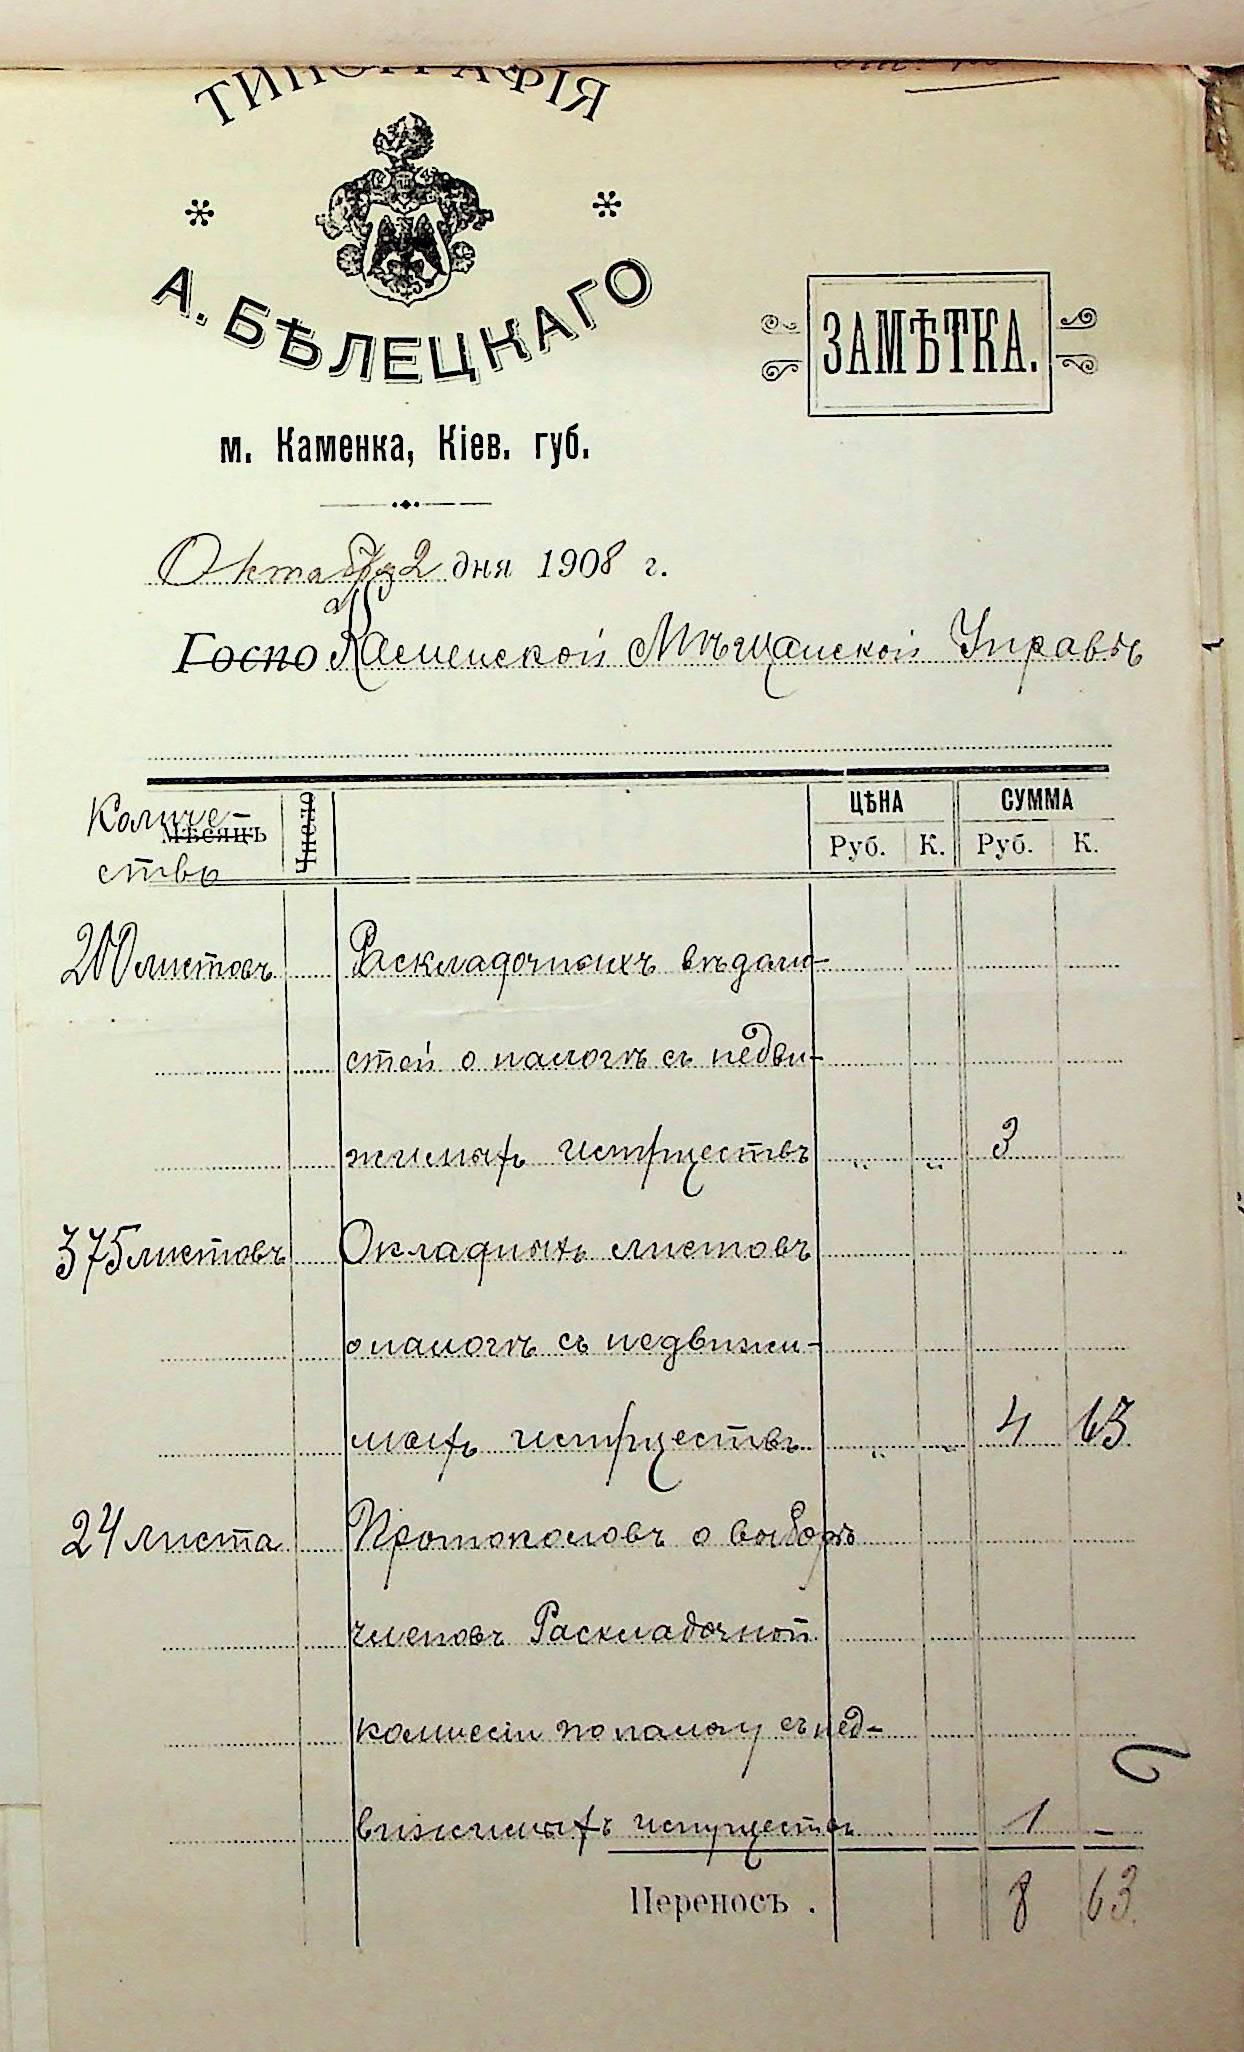 ТИПОГРАФІЯ
А. БѢЛЕЦКАГО
м. Каменка, Кіев. губ.
ЗАМѢТКА.
Октября 2 дня 1908 г.
Госпо Каменской Мѣщанской Управѣ
Количе-
ство
МѢСЯЦЪ
Число
ЦѢНА
СУММА
Руб. К. Руб. К.
200 листовъ Раскладочныхъ вѣдомо-
стей о налогѣ съ недви-
жимыхъ имуществъ " " 3
375 листовъ Окладныхъ листовъ
о налогѣ съ недвижи-
мыхъ имуществъ " " 4 63
24 листа Протоколовъ о выборѣ
членовъ Раскладочной
комиссіи по налогу съ нед-
вижимыхъ имуществъ 1 –
Переносъ . 8 63.